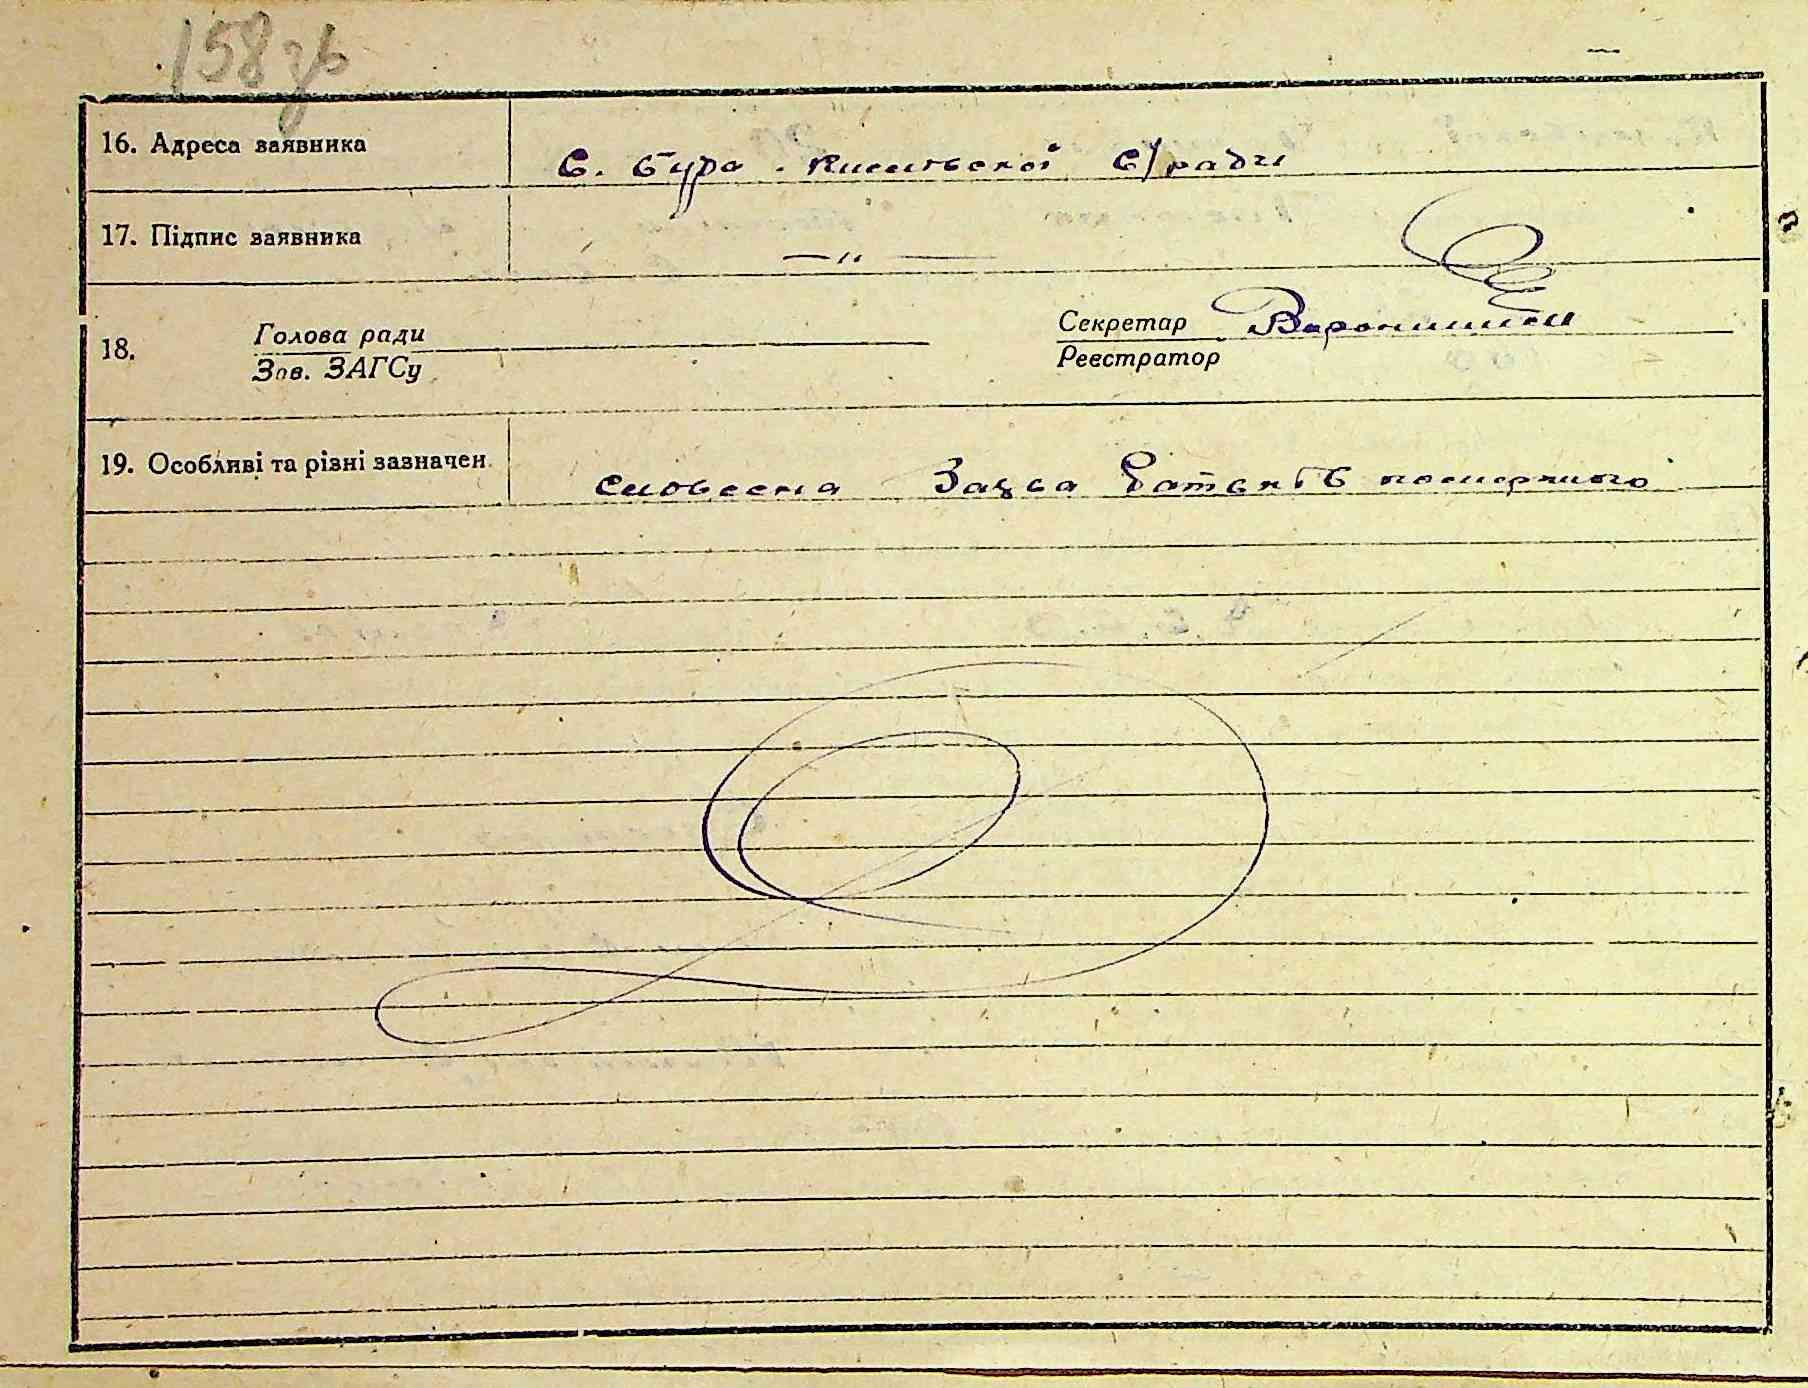 158 зв
16. Адреса заявника с. Бура. Кисилівської с/ради
17. Підпис заявника —„—
18. Голова ради Секретар
Зав. ЗАГСу Реєстратор
19. Особливі та різні зазначен. словесна Заява батьків померлого